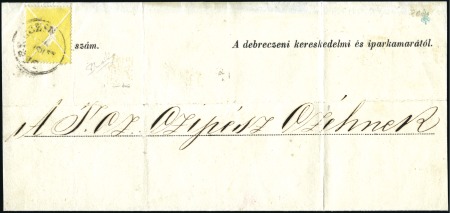 szám. A debreczeni kereskedelmi és iparkamarától.
A T. Cz. Czipész Czéhnek